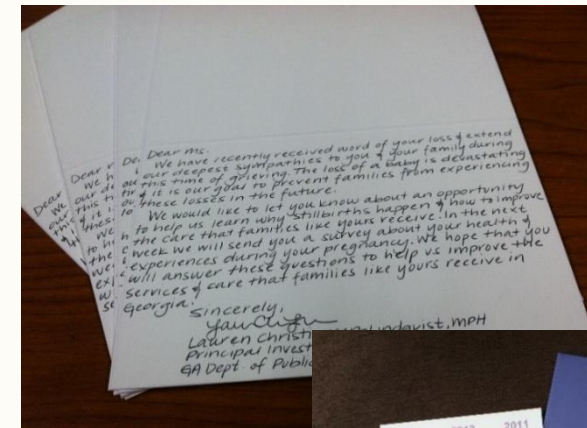 Dear Ms.
We have recently received word of your loss & extend
our deepest sympathies to you & your family during
this time of grieving. The loss of a baby is devastating
& it is our goal to prevent families from experiencing
these losses in the future.
We would like to let you know about an opportunity
to help us learn why stillbirths happen & how to improve
the care that families like yours receive. In the next
week we will send you a survey about your health &
experiences during your pregnancy. We hope that you
will answer these questions to help us improve the
services & care that families like yours receive in
Georgia.
Sincerely,
Lauren Christ Lindqvist, MPH
Principal Invest
GA Dept. of Public
2011